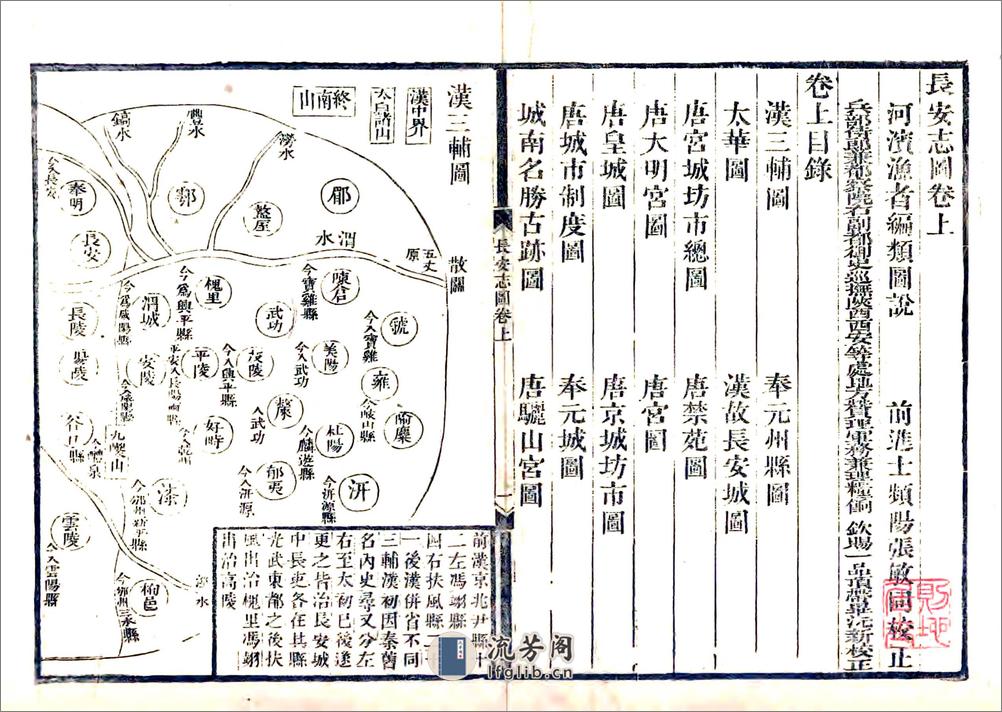 長安志圖卷上
河濱漁者編類圖說
前進士頻陽張敏同校正
兵部侍郎兼都察院右副都御史巡撫陝西西安等處地方贊理軍務兼理糧餉 欽賜一品頂帶畢沅新校正
卷上目錄
漢三輔圖
奉元州縣圖
太華圖
漢故長安城圖
唐宮城坊市總圖
唐禁苑圖
唐大明宮圖
唐宮圖
唐皇城圖
唐京城坊市圖
唐城市制度圖
奉元城圖
城南名勝古跡圖
唐驪山宮圖
長安志圖卷上
一
漢三輔圖
散關
漢中界
太白諸山
終南山
五丈原
渭水
郿
盩厔
澇水
豐水
鄠
鎬水
今入長安
奉明
長安
陳倉
今寶雞縣
虢
今入寶雞
雍
隃麋
武功
美陽
今入武功
槐里
今為興平縣
渭城
今為咸陽縣
長陵
安陵
平陵
茂陵
今入興平縣
斄
入武功
杜陽
今麟遊縣
汧
今汧源縣
郁夷
今入汧源
好畤
谷口縣
今醴泉
九嵕山
漆
今邠州新平縣
雲陵
今入雲陽縣
栒邑
今邠州三水縣
前漢京兆尹縣十
二左馮翊縣二十
四右扶風縣二十
一後漢併省不同
三輔漢初因秦舊
名內史尋又分左
右至太初已後遂
更之皆治長安城
中長吏各在其縣
光武東都之後扶
風出治槐里馮翊
出治高陵
流芳阁
lfglib.cn